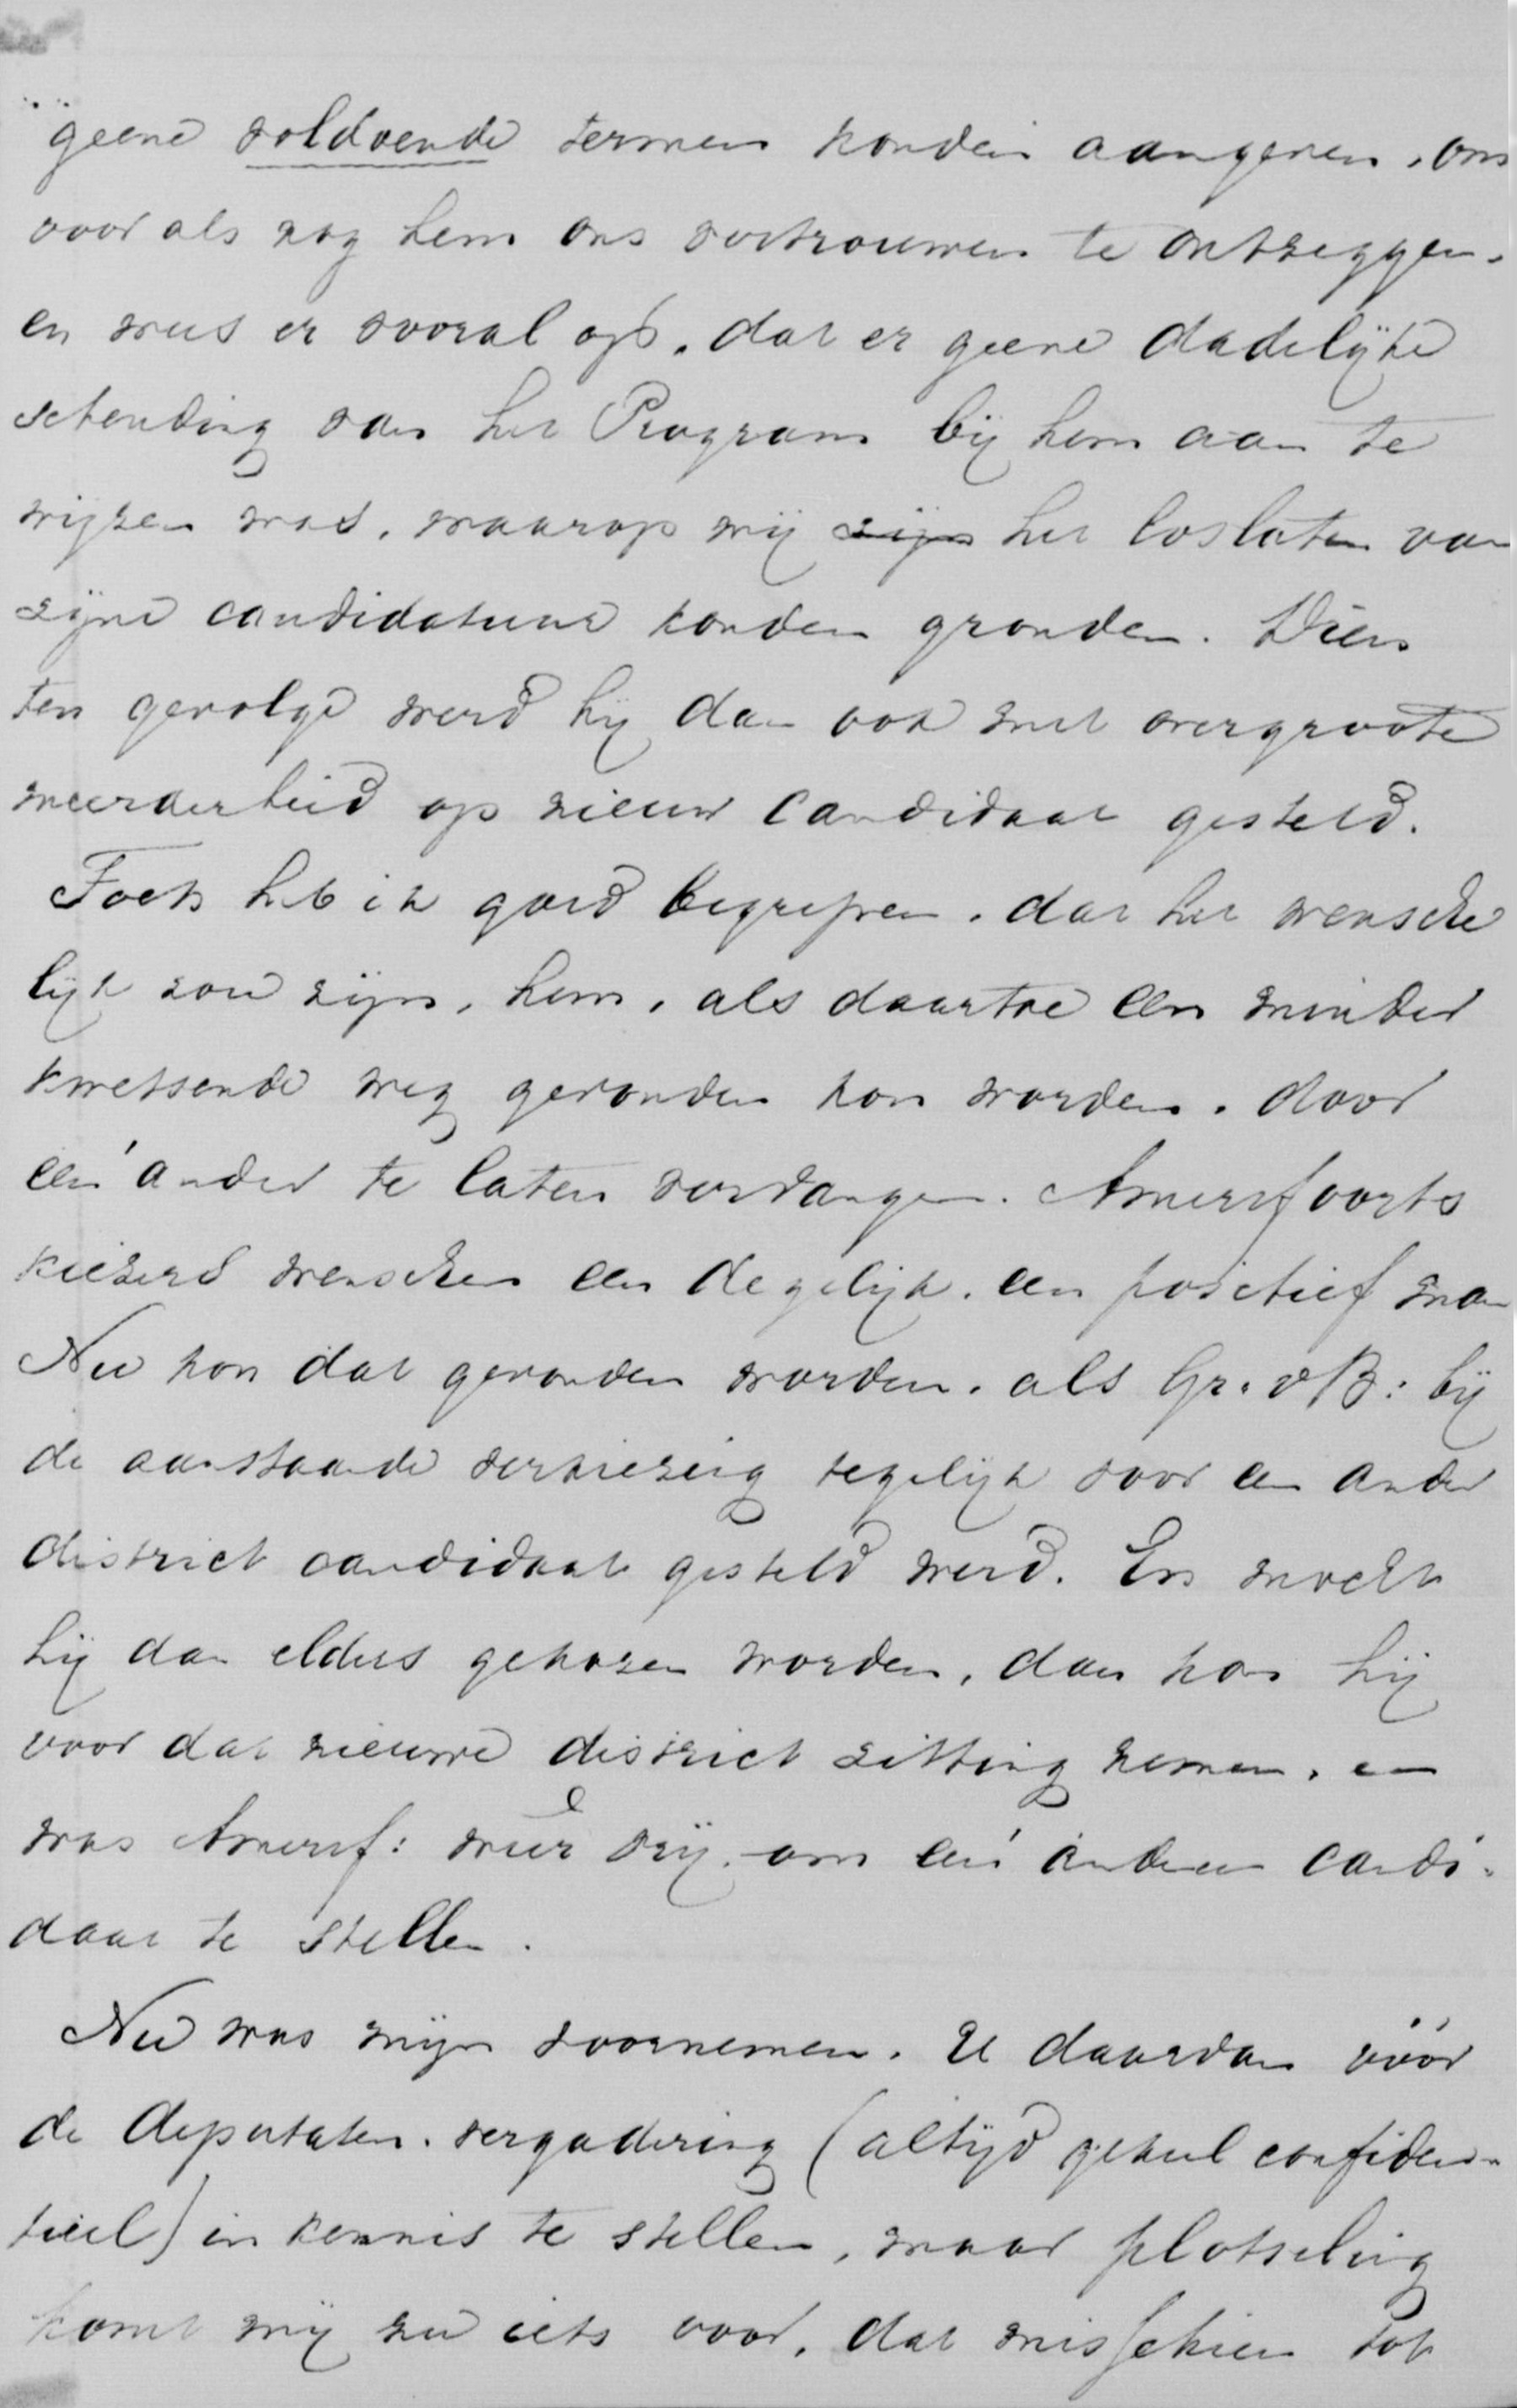 geene voldoende termen konden aangeven, om
voor als nog hem ons vertrouwen te ontzeggen,
en wees er vooral op, dat er geene dadelijke
schending van het Program bij hem aan te
wijzen was, waarop wij zijn het loslaten van
zijne candidatuur konden gronden. Dien
ten gevolge werd hij dan ook met overgroote
meerderheid op nieuw candidaat gesteld.
Toch heb ik goed begrepen, dat het wensche
lijk zou zijn, hem, als daartoe een minder
kwetsende weg gevonden kon worden, door
een ander te laten vervangen. Amersfoorts
kiezers wenschen een degelijk, een positief man
Nu kon dat gevonden worden, als Gr. v B: bij
de aanstaande verkiezing tegelijk voor een ander
district candidaat gesteld werd. En mocht
hij dan elders gekozen worden, dan kon hij
voor dat nieuwe district zitting nemen, en
was Amersf: weer vrij, om een anderen candi-
daat te stellen.
Nu was mijn voornemen, U daarvan vóór
de deputaten-vergadering (altijd geheel confiden-
tieel) in kennis te stellen, maar plotseling
komt mij nu iets voor, dat misschien tot